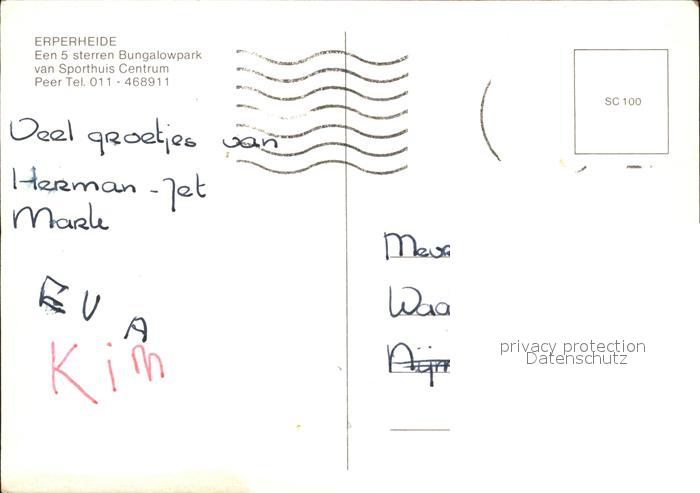 ERPERHEIDE
Een 5 sterren Bungalowpark
van Sporthuis Centrum
Peer Tel. 011 - 468911
SC 100
Veel groetjes van
Herman - Jet
Mark
EVA
Kim
privacy protection
Datenschutz